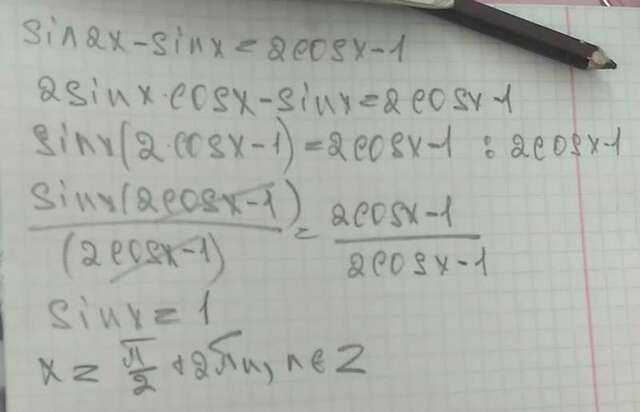 sin2x-sinx=2cosx-1
2sinx·cosx-sinx=2cosx-1
sinx(2·cosx-1)=2cosx-1 : 2cosx-1
sinx(2cosx-1)/(2cosx-1) = 2cosx-1/2cosx-1
sinx=1
x=π/2+2πn, n∈Z